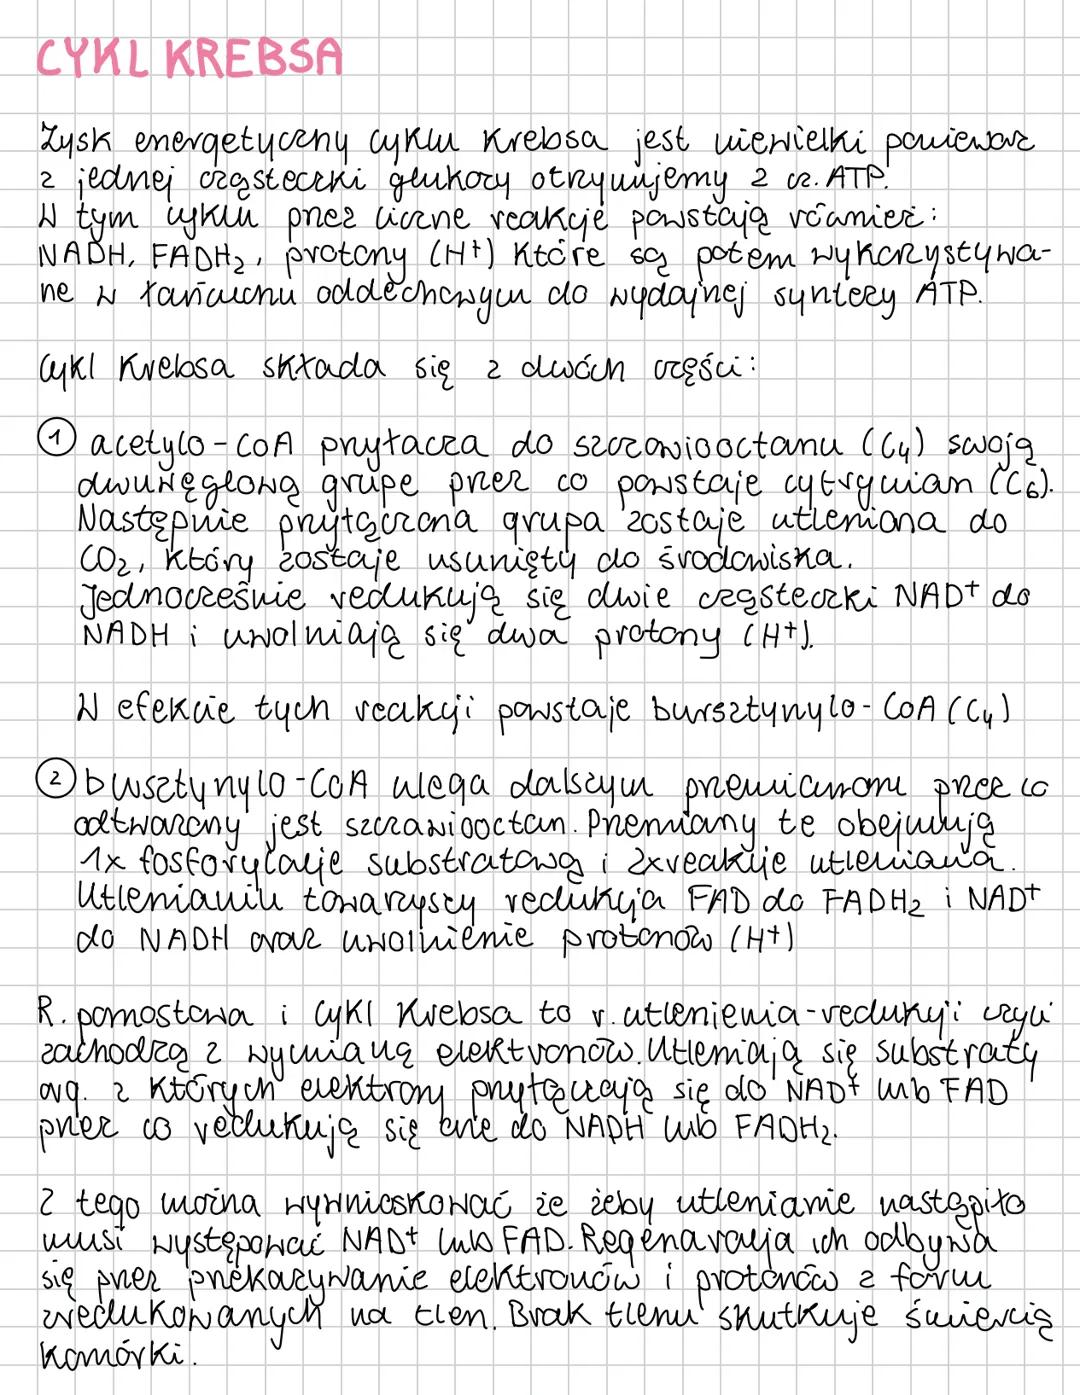 CYKL KREBSA
Zysk energetyczny cyklu Krebsa jest niewielki ponieważ
z jednej cząsteczki glukozy otrzymujemy 2 cz. ATP.
W tym cyklu przez liczne reakcje powstają również:
NADH, FADH₂, protony (H⁺) które są potem wykorzystywa-
ne w łańcuchu oddechowym do wydajnej syntezy ATP.
Cykl Krebsa składa się z dwóch części:
① acetylo-CoA przyłącza do szczawiooctanu (C₄) swoją
dwuwęglową grupę przez co powstaje cytrynian (C₆).
Następnie przyłączona grupa zostaje utleniona do
CO₂, który zostaje usunięty do środowiska.
Jednocześnie redukują się dwie cząsteczki NAD⁺ do
NADH i uwolniają się dwa protony (H⁺).
W efekcie tych reakcji powstaje bursztynylo-CoA (C₄)
② bursztynylo-CoA ulega dalszym przemianom przez co
odtwarzany jest szczawiooctan. Przemiany te obejmują
1x fosforylację substratową i 2x reakcje utleniania.
Utlenianiu towarzyszy redukcja FAD do FADH₂ i NAD⁺
do NADH oraz uwolnienie protonów (H⁺)
R. pomostowa i Cykl Krebsa to r. utlenienia-redukcji czyli
zachodzą z wymianą elektronów. Utleniają się substraty
org. z których elektrony przyłączają się do NAD⁺ lub FAD
przez co redukują się one do NADH lub FADH₂.
Z tego można wywnioskować że żeby utlenianie nastąpiło
musi występować NAD⁺ lub FAD. Regenaracja ich odbywa
się przez przekazywanie elektronów i protonów z form
zredukowanych na tlen. Brak tlenu skutkuje śmiercią
komórki.